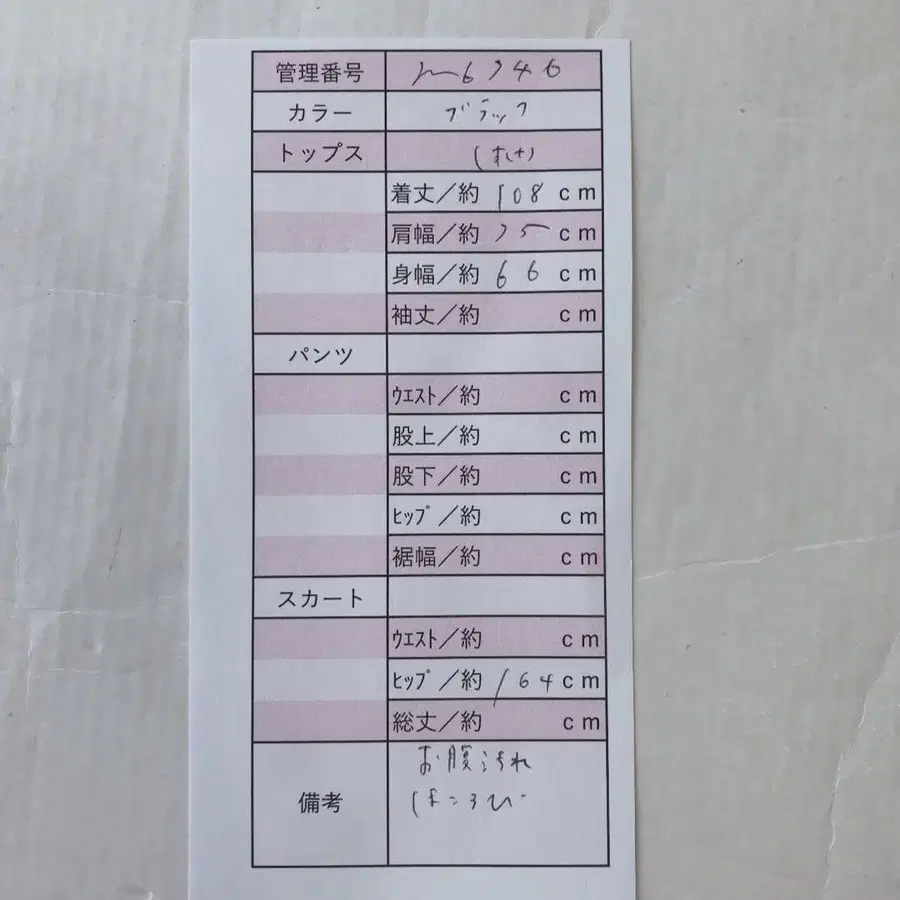 管理番号 m6346
カラー ブラック
トップス
着丈／約 108 cm
肩幅／約 35 cm
身幅／約 66 cm
袖丈／約 cm
パンツ
ｳｴｽﾄ／約 cm
股上／約 cm
股下／約 cm
ﾋｯﾌﾟ／約 cm
裾幅／約 cm
スカート
ｳｴｽﾄ／約 cm
ﾋｯﾌﾟ／約 164 cm
総丈／約 cm
備考 お腹汚れ
ほころび